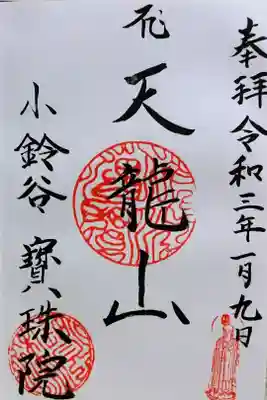 奉拝令和三年一月九日
天龍山
小鈴谷寶珠院